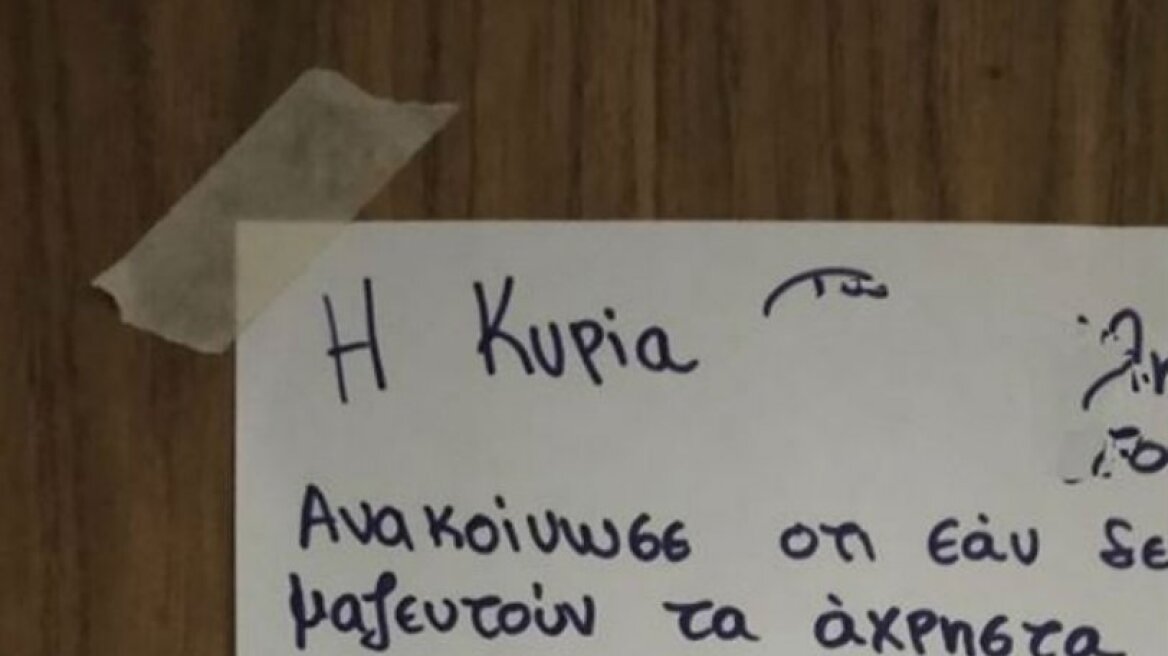 Η Κυρία
Ανακοίνωσε οτι εάν δε
μαζευτούν τα άχρηστα